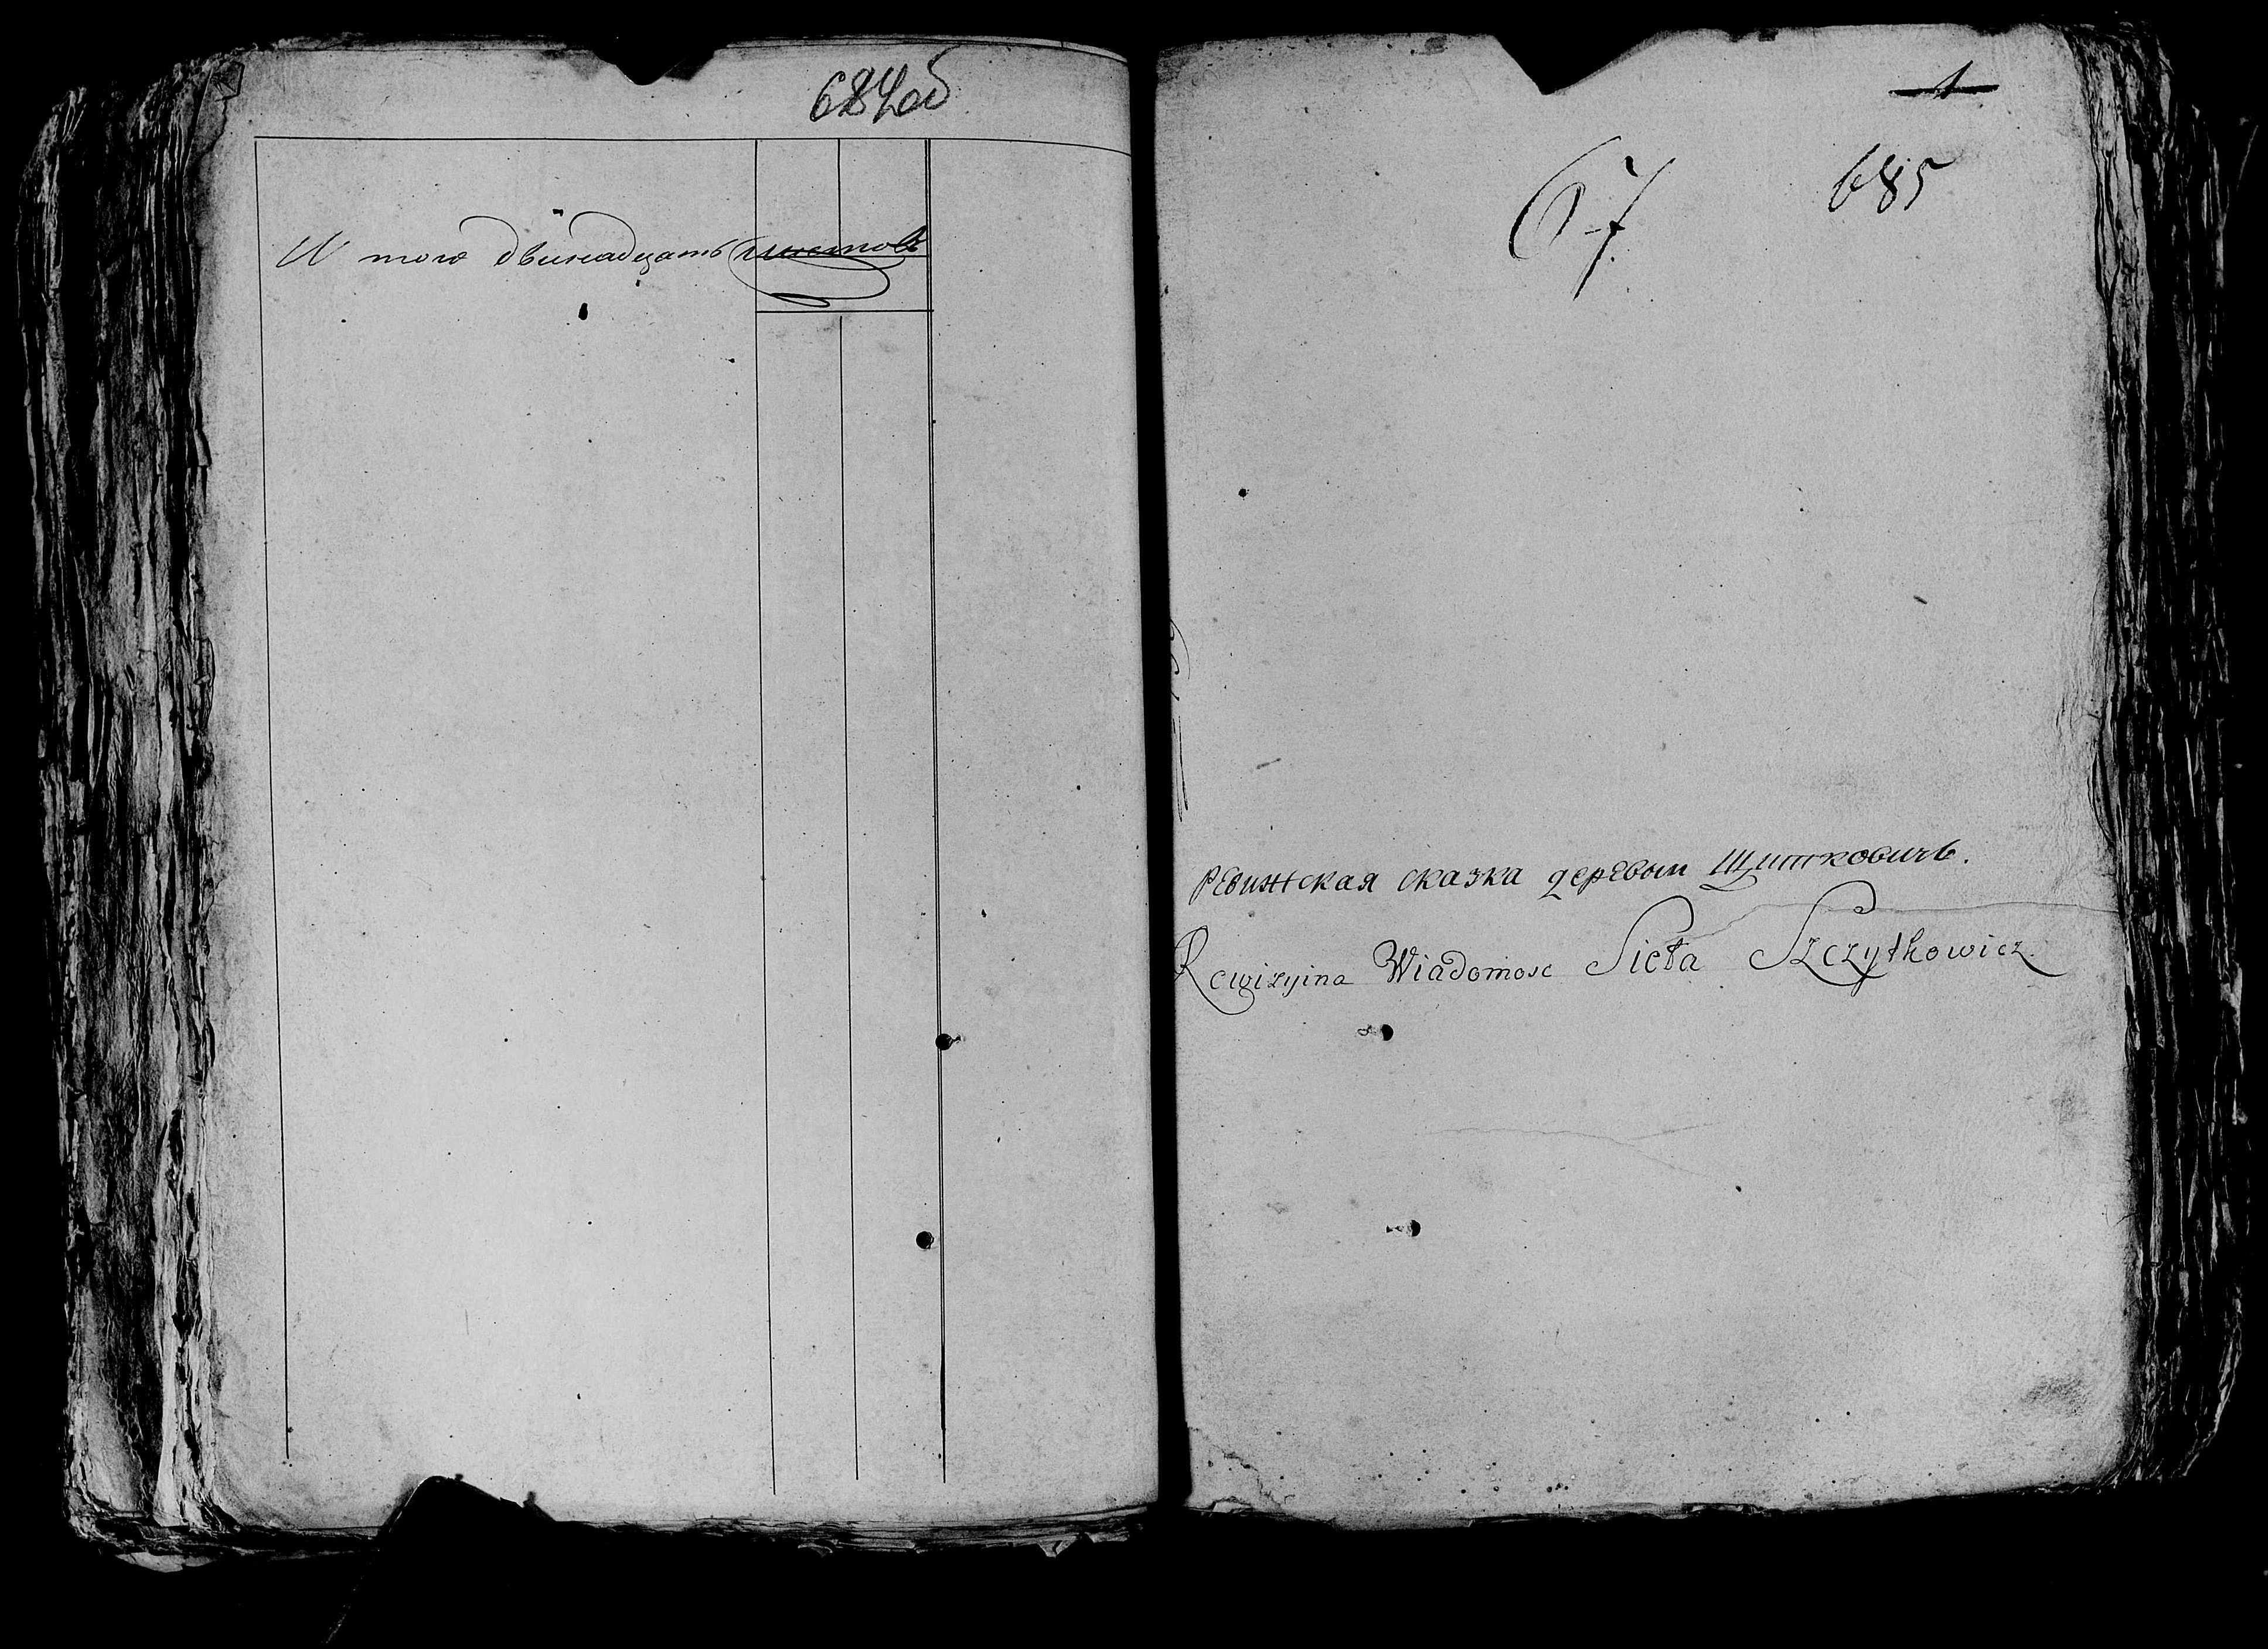 684об
И того двенадцать листовъ
1
67. 685
Ревижская сказка деревыи Щитковичь.
Rewizyina Wiadomosc Sioła Szczytkowicz.